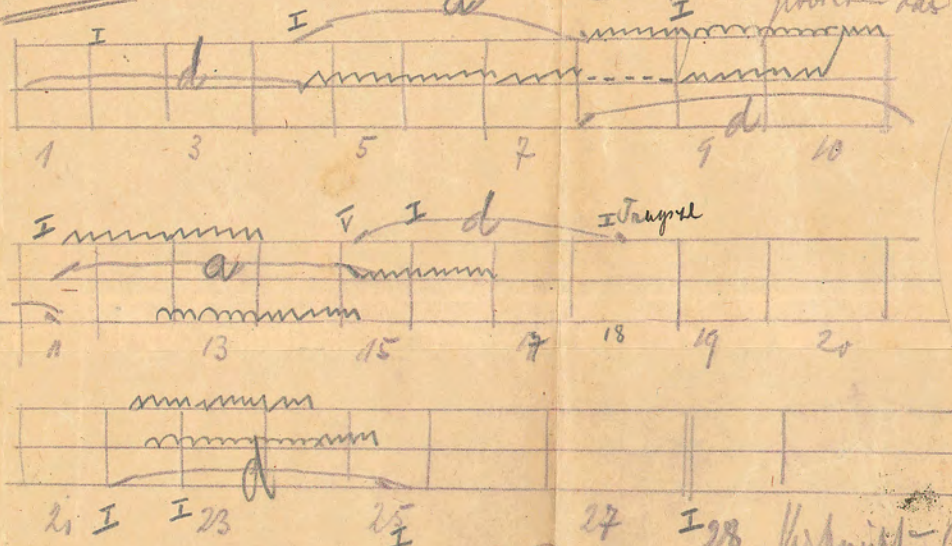 I I a I
d
d
1 3 5 7 9 10
I V I d I
a
11 13 15 17 18 19 20
d
21 I I 23 25 I 27 I 28